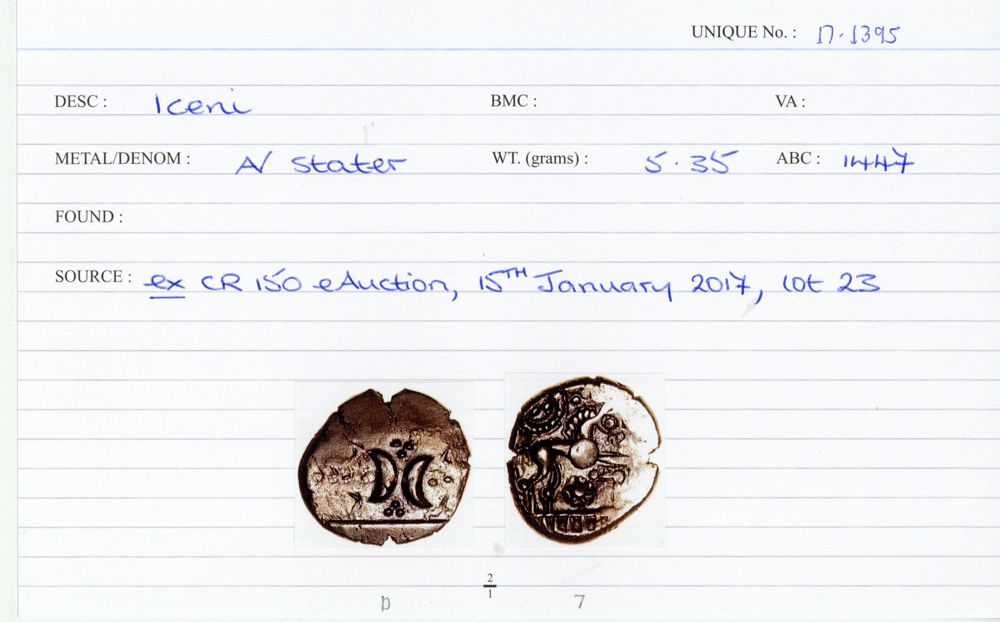 UNIQUE No. : 17.1395
DESC : Iceni BMC : VA :
METAL/DENOM : A/ Stater WT. (grams) : 5.35 ABC : 1447
FOUND :
SOURCE : ex CR 150 eAuction, 15TH January 2017, lot 23
2
1
D 7